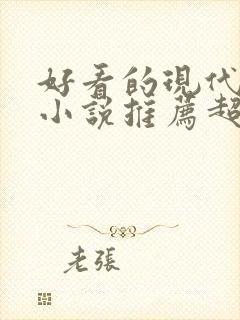 好看的現代
小說推薦超
老張